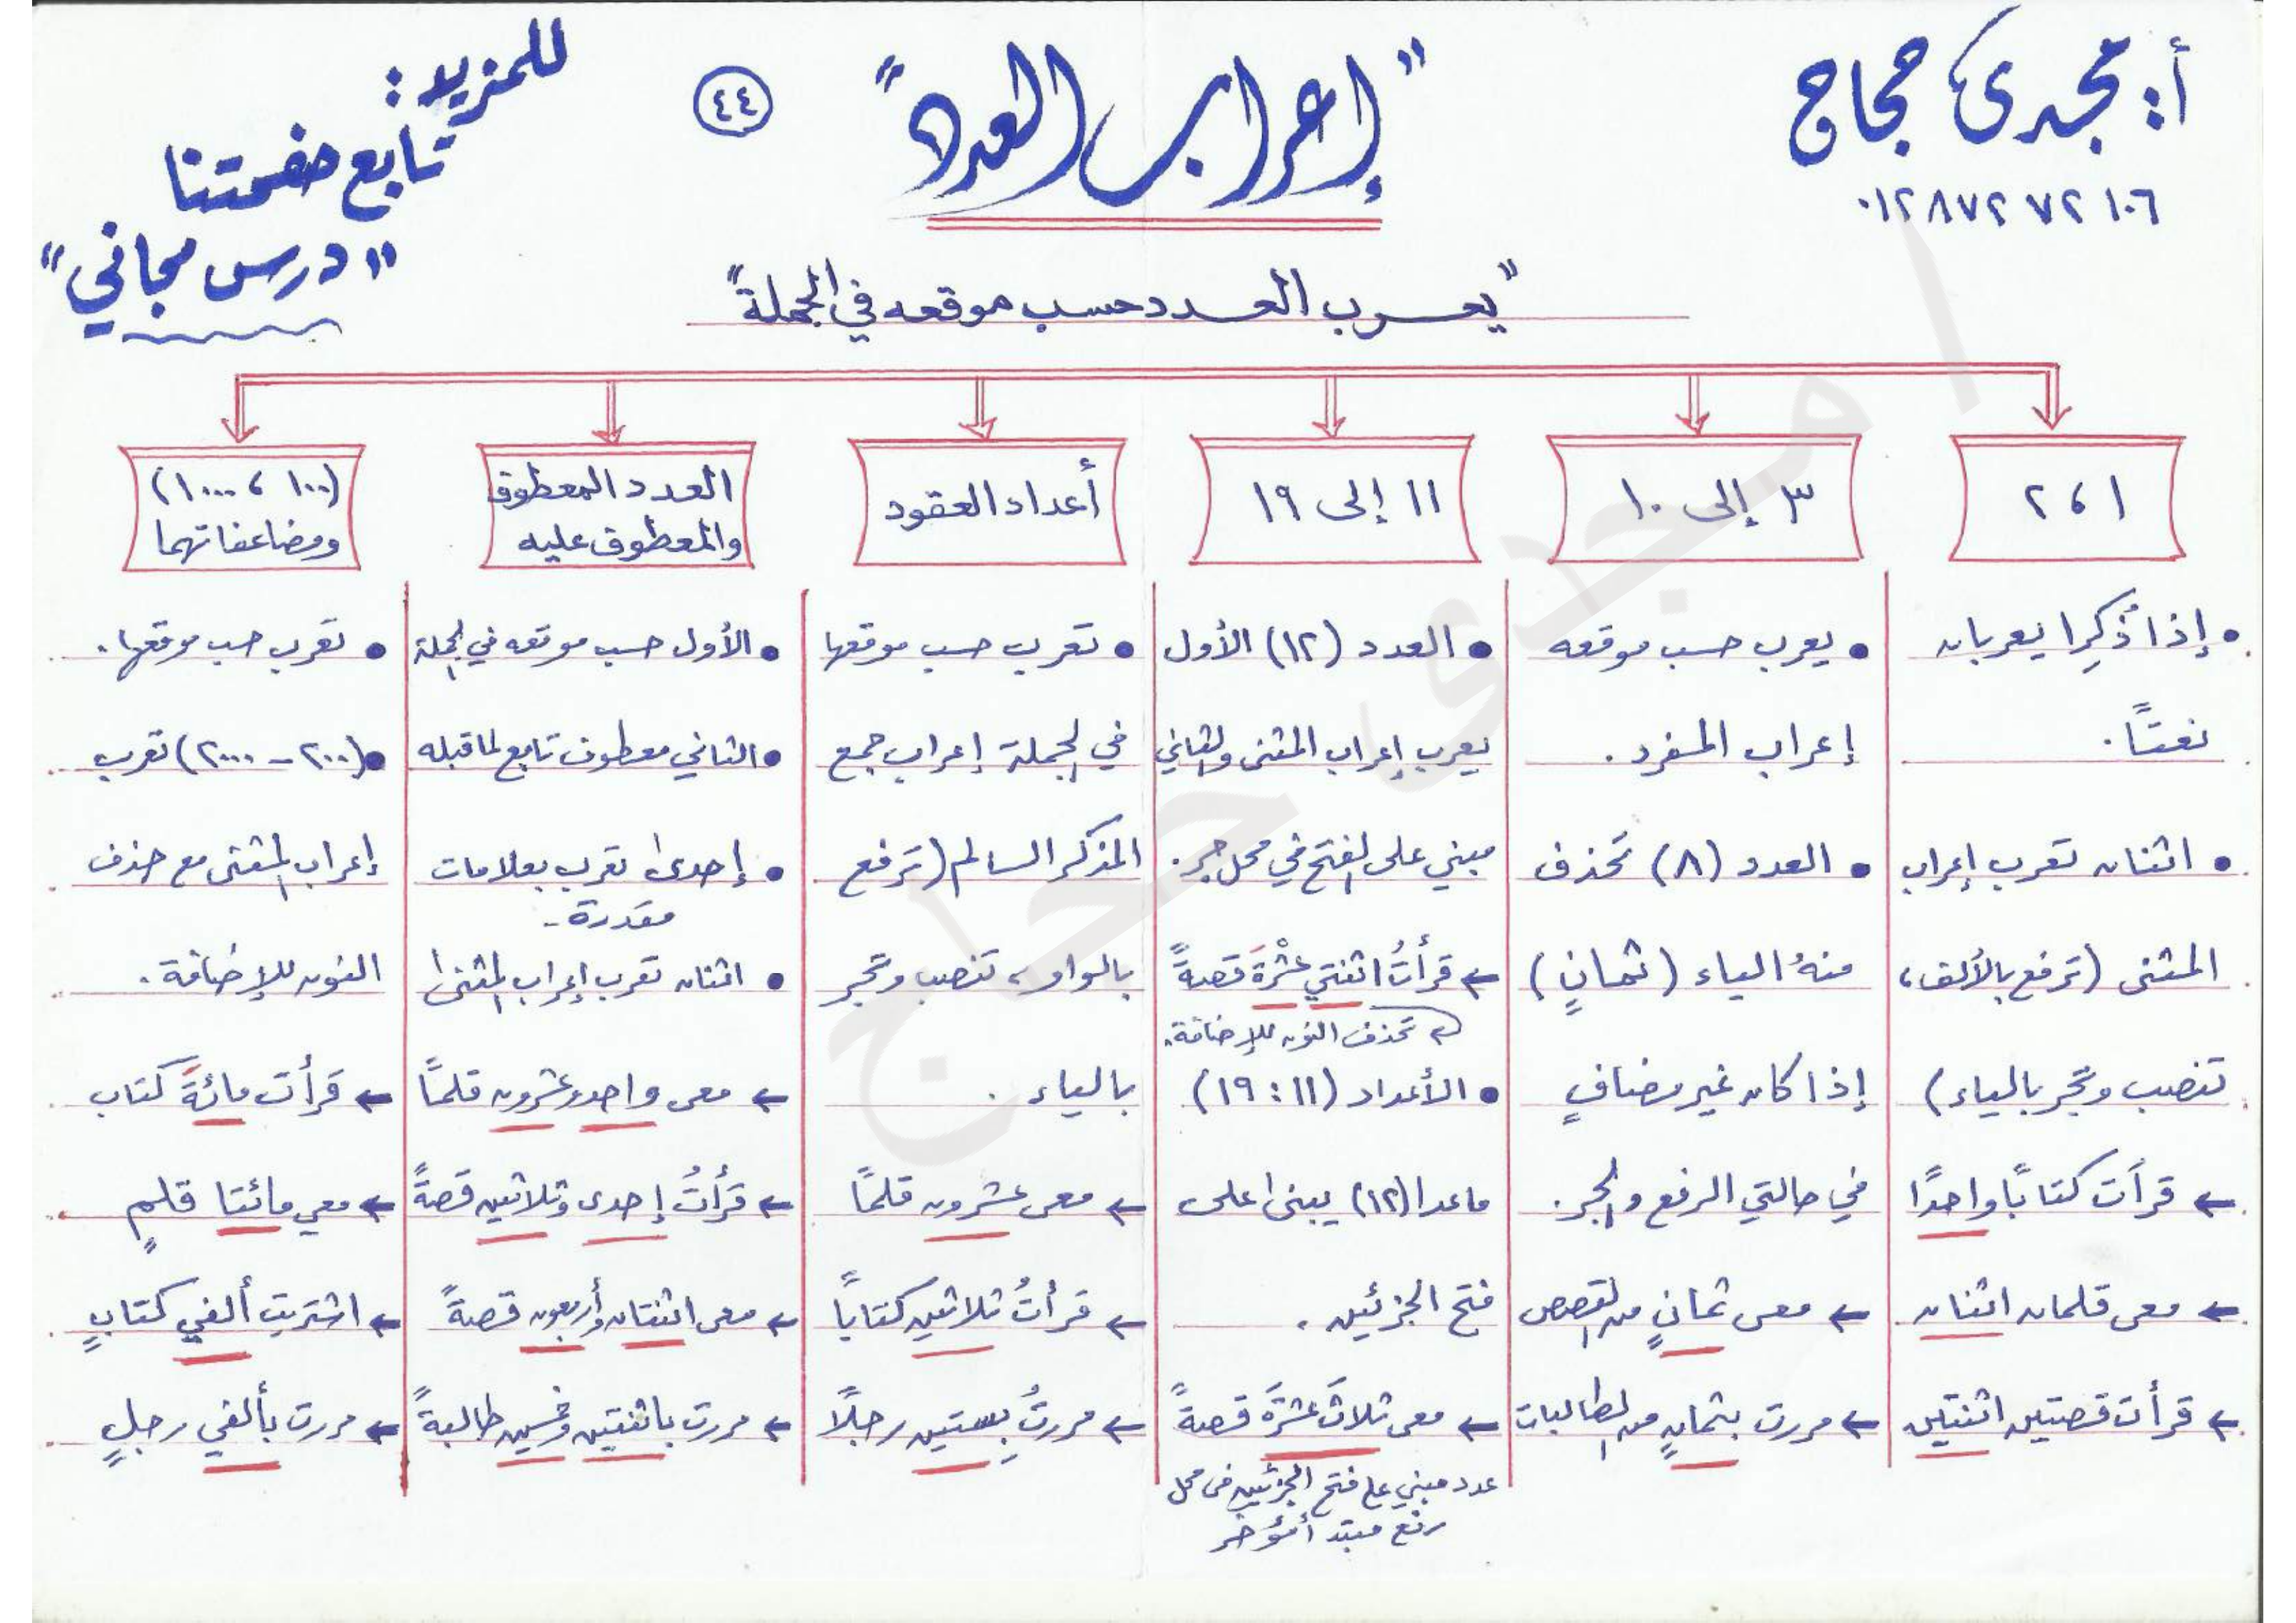 أ: مجدى حجاج
٠١٢٨٧٢٧٢١٠٦
"إعراب العدد"
٤٤
للمزيد:
تابع صفحتنا
"درس مجاني"
"يعرب العدد حسب موقعه في الجملة"
١ ، ٢
• إذا ذُكِرا يعربان
نعتًا.
• اثنان تعرب إعراب
المثنى (ترفع بالألف،
تنصب وتجر بالياء)
← قرأت كتابًا واحدًا
← معى قلمان اثنان
← قرأت قصتين اثنتين
٣ إلى ١٠
• يعرب حسب موقعه
إعراب المفرد.
• العدد (٨) تحذف
منهُ الياء (ثمانٍ)
إذا كان غير مضافٍ
في حالتي الرفع والجر.
← معى ثمانٍ من القصص
← مررت بثمانٍ من الطالبات
١١ إلى ١٩
• العدد (١٢) الأول
يعرب إعراب المثنى والثاني
مبني على الفتح في محل جر.
← قرأتُ اثنتي عشْرةَ قصةً
تحذف النون للإضافة.
• الأعداد (١١ : ١٩)
ماعدا (١٢) يبنى على
فتح الجزئين.
← معى ثلاثَ عشْرَةَ قصةً
عدد مبني على فتح الجزئين فى محل
رفع مبتدأ مؤخر
أعداد العقود
• تعرب حسب موقعها
في الجملة إعراب جمع
المذكر السالم (ترفع
بالواو، تنصب وتجر
بالياء.
← معى عشرون قلمًا
← قرأتُ ثلاثين كتابًا
← مررتُ بستين رجلًا
العدد المعطوف
والمعطوف عليه
• الأول حسب موقعه في الجملة
• الثاني معطوف تابع لما قبله
• إحدى تعرب بعلامات
مقدرة.
• اثنان تعرب إعراب المثنى
← معى واحد وعشرون قلمًا
← قرأتُ إحدى وثلاثين قصةً
← معى اثنتان وأربعون قصةً
← مررت باثنتين وخمسين طالبةً
(١٠٠ ، ١٠٠٠)
ومضاعفاتهما
• تعرب حسب موقعها.
• (٢٠٠ - ٢٠٠٠) تعرب
إعراب المثنى مع حذف
النون للإضافة.
← قرأت مائةَ كتاب
← معي مائتا قلمٍ
← اشتريت ألفي كتابٍ
← مررت بألفي رجلٍ
ا/مجدى حجاج